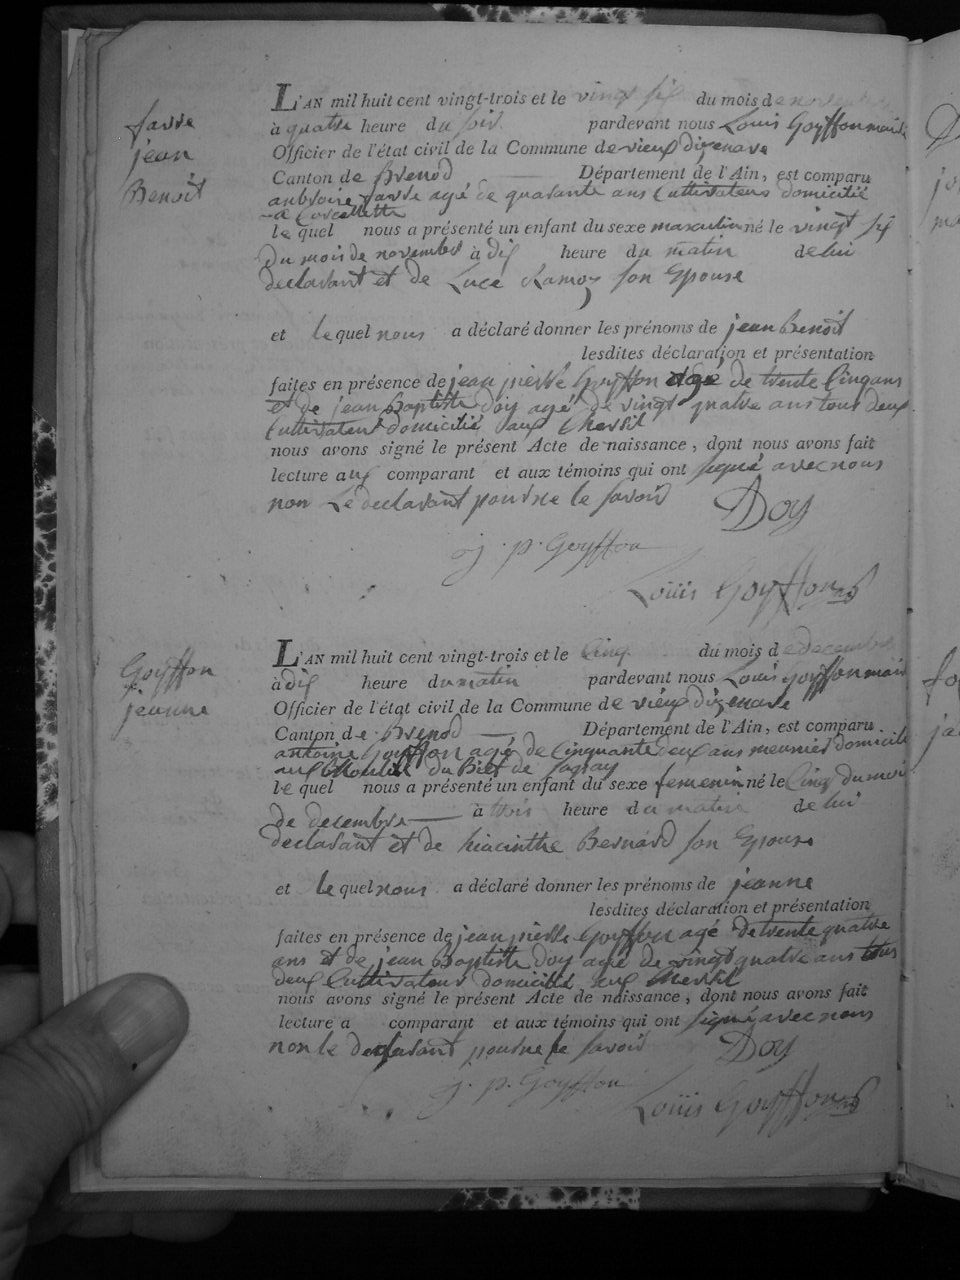 favre
jean
Benoit
L'AN mil huit cent vingt-trois et le vingt six du mois de novembre
à quatre heure du soir pardevant nous Louis Goÿffon maire
Officier de l'état civil de la Commune de vieux dizenave
Canton de Brenod Département de l'Ain, est comparu
favre agé de quarante ans Cultivateur domicilié
a Corcelette
le quel nous a présenté un enfant du sexe masculin né le vingt six
du mois de novembre à dix heure du matin de lui
declarant et de Luce Ramoz son Epouse
et le quel nous a déclaré donner les prénoms de jean benoit
lesdites déclaration et présentation
faites en présence de jean pierre Goÿffon agé de trente Cinq ans
et de jean Baptiste Doy agé de vingt quatre ans tous deux
Cultivateur domicilié aux
nous avons signé le présent Acte de naissance, dont nous avons fait
lecture aux comparant et aux témoins qui ont signé avec nous
non Le declarant pour ne le savoir
Doy
j. p. Goyffon
Louis Goÿffon
Goÿffon
jeanne
L'AN mil huit cent vingt-trois et le Cinq du mois de decembre
à dix heure du matin pardevant nous Louis Goÿffon maire
Officier de l'état civil de la Commune de vieux dizenave
Canton de Brenod Département de l'Ain, est comparu
antoine Goÿffon agé de Cinquante deux ans meunier domicilié
aux Moulin du Bief de
le quel nous a présenté un enfant du sexe femenin né le Cinq du moi
de decembre à trois heure du matin de lui
declarant et de hiacinthe Bernard son Epouse
et le quel nous a déclaré donner les prénoms de jeanne
lesdites déclaration et présentation
faites en présence de jean pierre Goÿffon agé de trente quatre
ans et de jean Baptiste Doy agé de vingt quatre ans tous
deux Cultivateur domicilié aux
nous avons signé le présent Acte de naissance, dont nous avons fait
lecture a comparant et aux témoins qui ont signé avec nous
non le declarant pour ne le savoir
Doy
j. p. Goyffon
Louis Goÿffon